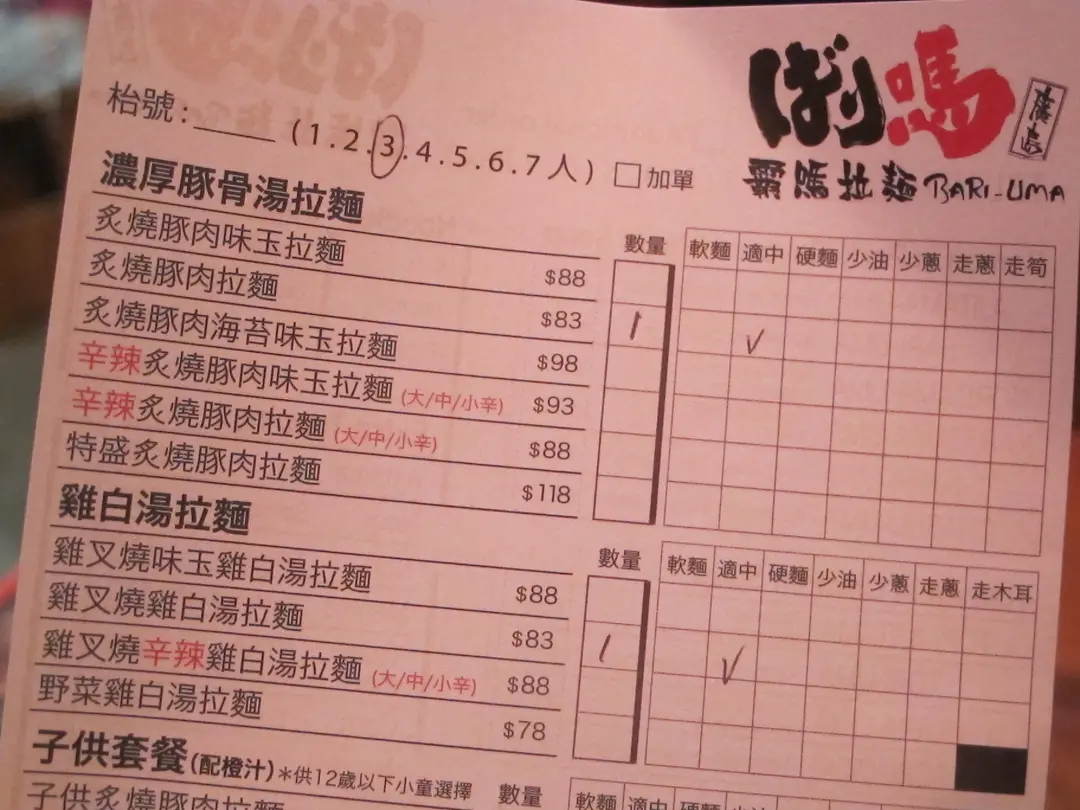 ばり嗎
廣島
霸嗎拉麵 BARI-UMA
枱號:_____ (1.2.3.4.5.6.7人) □加單
濃厚豚骨湯拉麵
數量 軟麵 適中 硬麵 少油 少蔥 走蔥 走筍
炙燒豚肉味玉拉麵 $88
炙燒豚肉拉麵 $83 1 ✓
炙燒豚肉海苔味玉拉麵 $98
辛辣炙燒豚肉味玉拉麵 (大/中/小辛) $93
辛辣炙燒豚肉拉麵 (大/中/小辛) $88
特盛炙燒豚肉拉麵 $118
雞白湯拉麵
數量 軟麵 適中 硬麵 少油 少蔥 走蔥 走木耳
雞叉燒味玉雞白湯拉麵 $88
雞叉燒雞白湯拉麵 $83 1 ✓
雞叉燒辛辣雞白湯拉麵 (大/中/小辛) $88
野菜雞白湯拉麵 $78
子供套餐(配橙汁) *供12歲以下小童選擇 數量 軟麵 適中 硬麵
子供炙燒豚肉拉麵